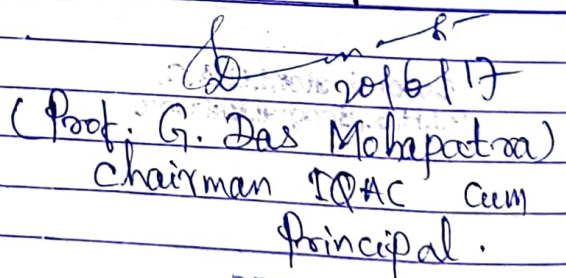 20/6/17
(Prof. G. Das Mohapatra)
Chairman IQAC Cum
Principal.